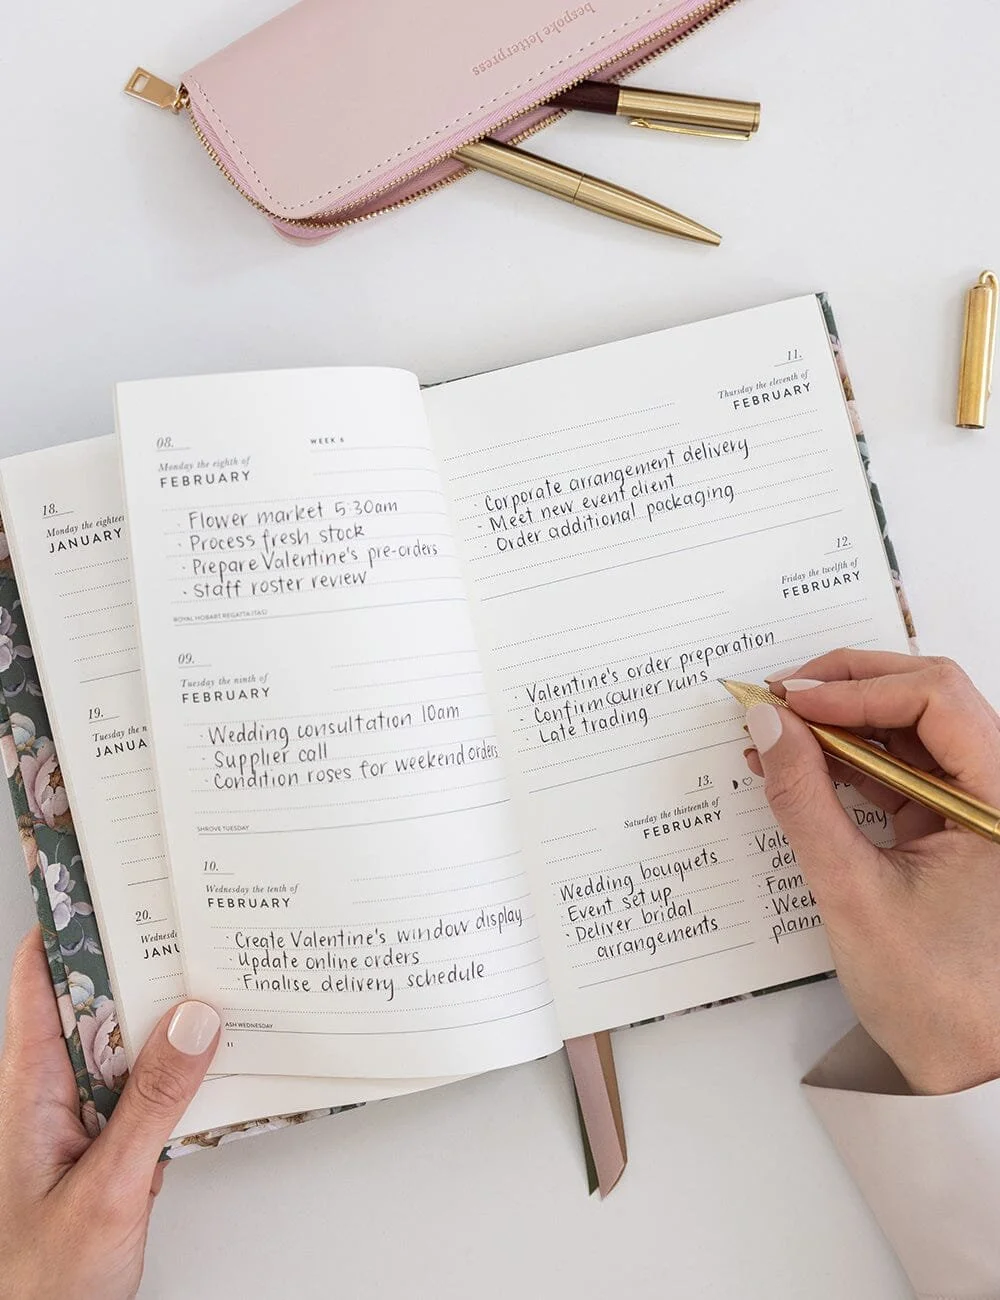 bespoke letterpress
18.
Monday the
JANUARY
19.
Tuesday the
20.
08.
WEEK 6
Monday the eighth of
FEBRUARY
· Flower market 5:30am
· Process fresh stock
· Prepare Valentine's pre-orders
· Staff roster review
ROYAL HOBART REGATTA (TAS)
09.
Tuesday the ninth of
FEBRUARY
· Wedding consultation 10am
· Supplier call
· Condition roses for weekend orders
SHROVE TUESDAY
10.
Wednesday the tenth of
FEBRUARY
· Create Valentine's window display
· Update online orders
· Finalise delivery schedule
ASH WEDNESDAY
11.
Thursday the eleventh of
FEBRUARY
· Corporate arrangement delivery
· Meet new event client
· Order additional packaging
12.
Friday the twelfth of
FEBRUARY
· Valentine's order preparation
· Confirm courier runs
· Late trading
13.
Saturday the thirteenth of
FEBRUARY
· Wedding bouquets
· Event set up
· Deliver bridal
arrangements
Day